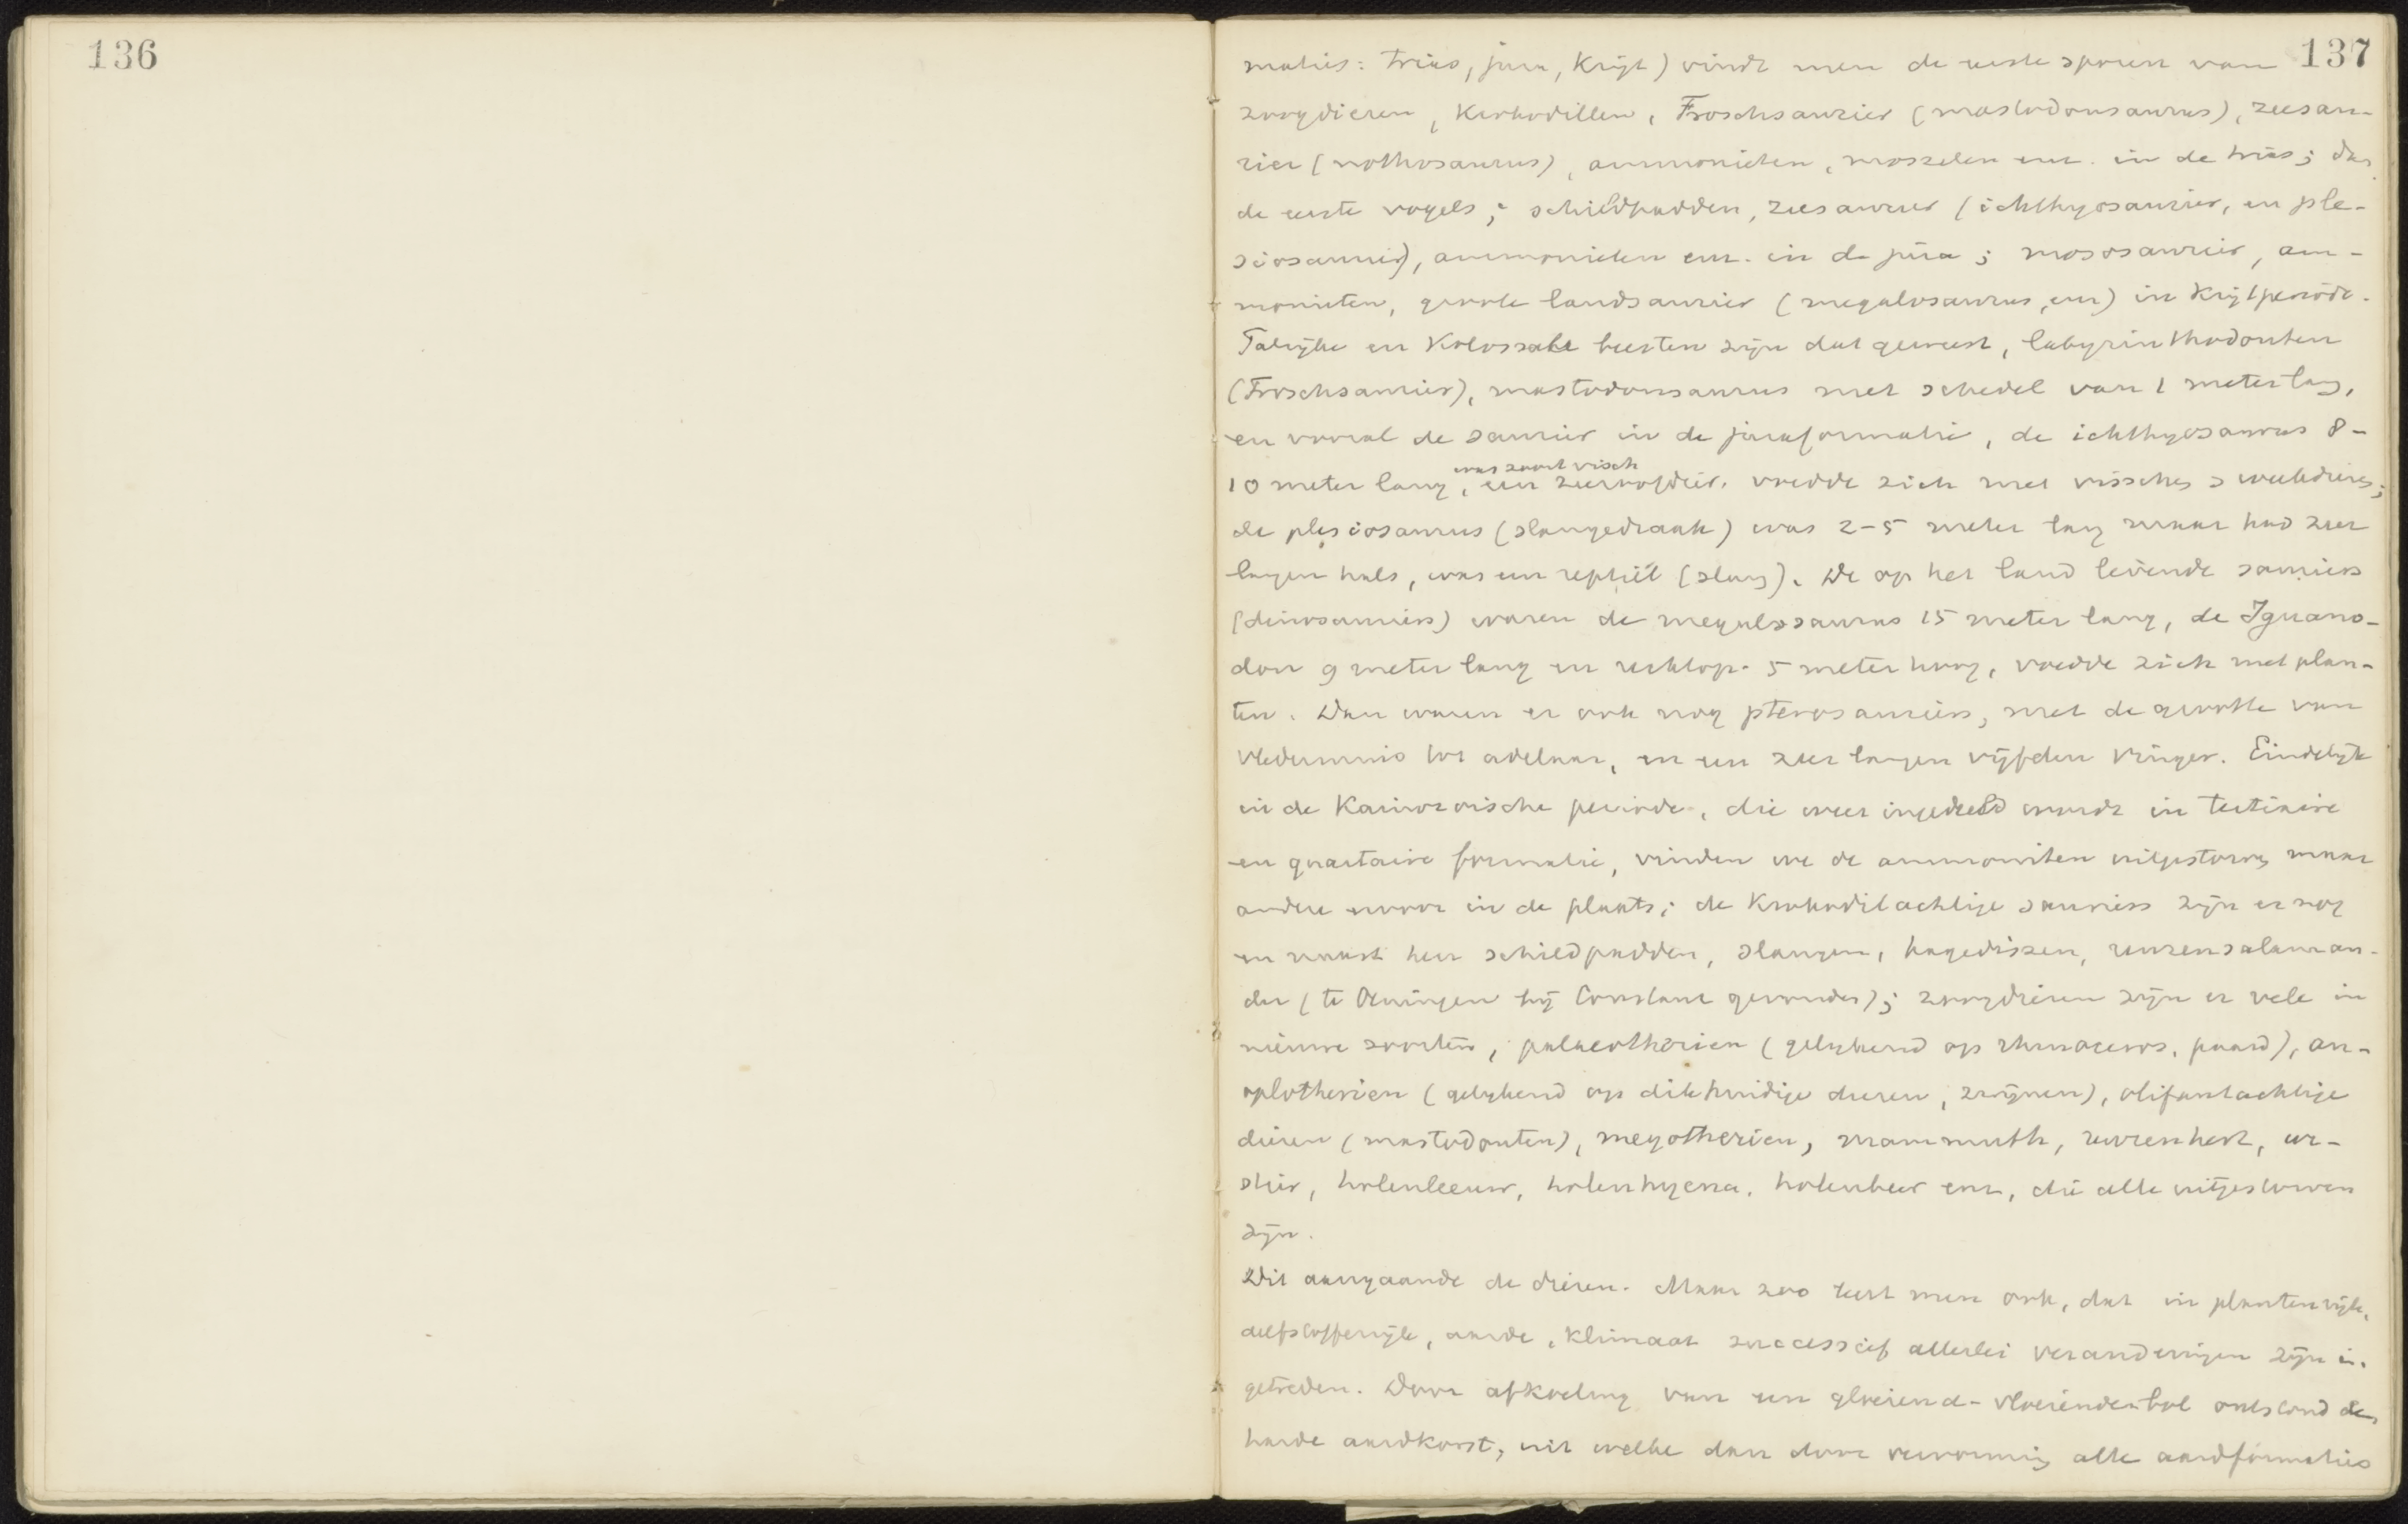 136
137
maties: trias, jura, Krijt) vindt men de eerste sporen van
zoogdieren, Krokodillen, Froschsaurier (mastodonsaurus), zeesau-
rier (nothosaurus), ammonieten, mosselen enz. in de trias; dan
de eerste vogels; schildpadden, zeesaurier (ichthyosaurier, en ple-
siosaurier), ammonieten enz. in de jura; mososaurier, am-
monieten, groote landsaurier (megalosaurus, enz) in Krijtperiode.
Talrijke en Kolossale beesten zijn dat geweest, labyrinthodonten
(Froschsaurier), mastodonsaurus met schedel van 1 meter lang,
en vooral de saurier in de juraformatie, de ichthyosaurus 8-
was soort visch
10 meter lang, een zeeroofdier, voedde zich met visschen & weekdieren;
de plesiosaurus (slangedraak) was 2-5 meter lang maar had zeer
langen hals, was een reptiel (slang). De op het land levende sauriers
(dinosauriers) waren de megalosaurus 15 meter lang, de Iguano-
don 9 meter lang en rechtop 5 meter hoog, voedde zich met plan-
ten. Dan waren er ook nog pterosauriers, met de grootte van
vledermuis tot adelaar, en een zeer langen vijfden vinger. Eindelijk
in de Kainozoische periode, die weer ingedeeld wordt in tertiaire
en quartaire formatie, vinden we de ammonieten uitgestorven maar
andere voor in de plaats; de Krokodilachtige sauriers zijn er nog
en naast hen schildpadden, slangen, hagedissen, reuzensalaman-
der (te Oeningen bij Constanz gevonden); zoogdieren zijn er vele in
nieuwe soorten, palaeotherien (gelijkend op rhinoceros, paard), an-
oplotherien (gelijkend op dikhuidige dieren, zwijnen), olifantachtige
dieren (mastodonten), megatherien, mammuth, reuzenhert, oer-
stier, holenleeuw, holenhyena, holenbeer enz, die alle uitgestorven
zijn.
Dit aangaande de dieren. Maar zoo leert men ook, dat in plantenrijk,
delfstoffenrijk, aarde, Klimaat successief allerlei veranderingen zijn in-
getreden. Door afkoeling van een gloeiend-vloeienden bol ontstond de
harde aardkorst, uit welke dan door vervorming alle aardformaties